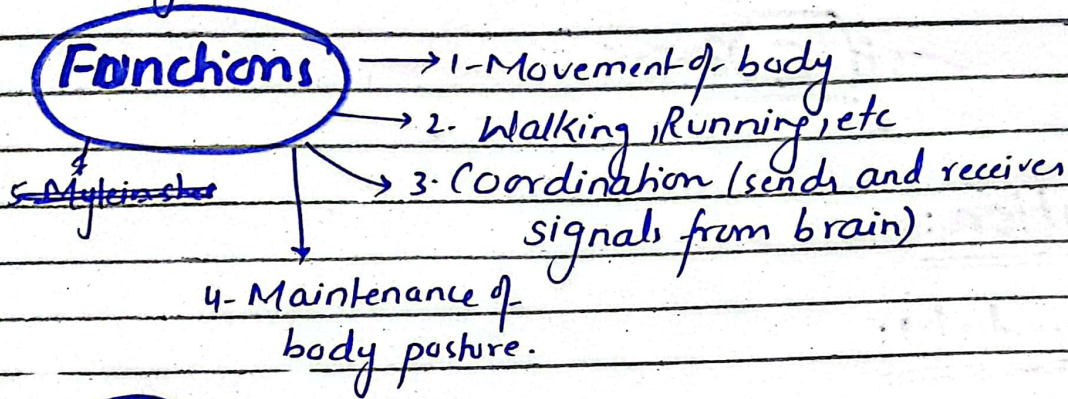 Functions
→ 1-Movement of body
→ 2. Walking, Running, etc
→ 3. Coordination (sends and receives
signals from brain)
4- Maintenance of
body posture.